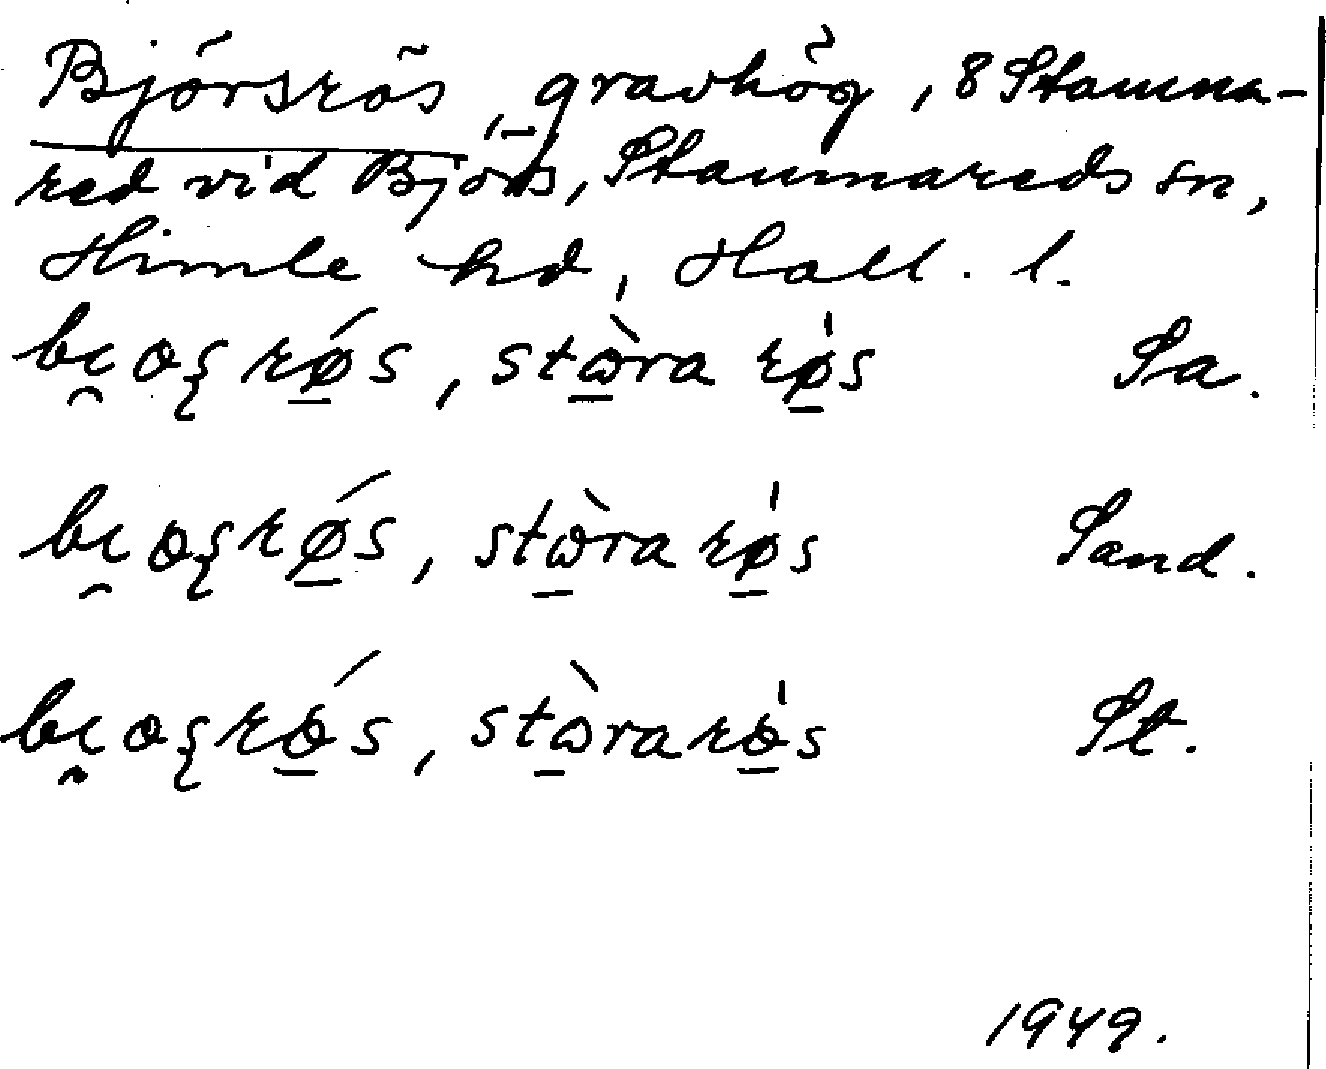 Björsrös, gravhög, 8 Stamna-
red vid Björs, Stamnareds sn,
Himle hd, Hall. l.
bi̯ oʂ rǿ̱s, stὼ̱ra rø̱̍s Sa.
bi̯ oʂrǿ̱s, stὼ̱ra rø̱̍s Sand.
bi̯ oʂrö̱́s, stὼ̱rarö̱̍s St.
1949.